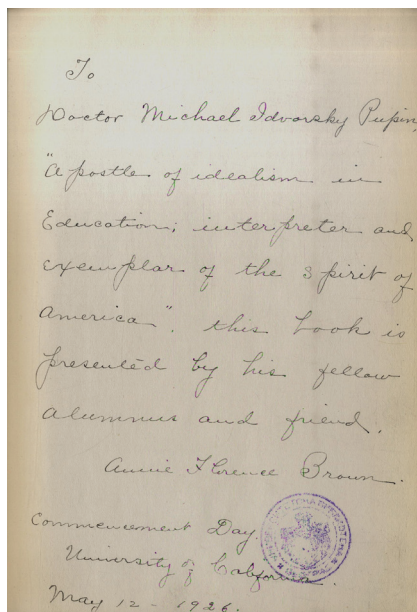 To
Doctor Michael Idvorsky Pupin,
"Apostle of idealism in
Education; interpreter and
exemplar of the spirit of
America". this book is
presented by his fellow
alumnus and friend.
Annie Florence Brown.
Commencement Day.
University of California.
May 12 - 1926.